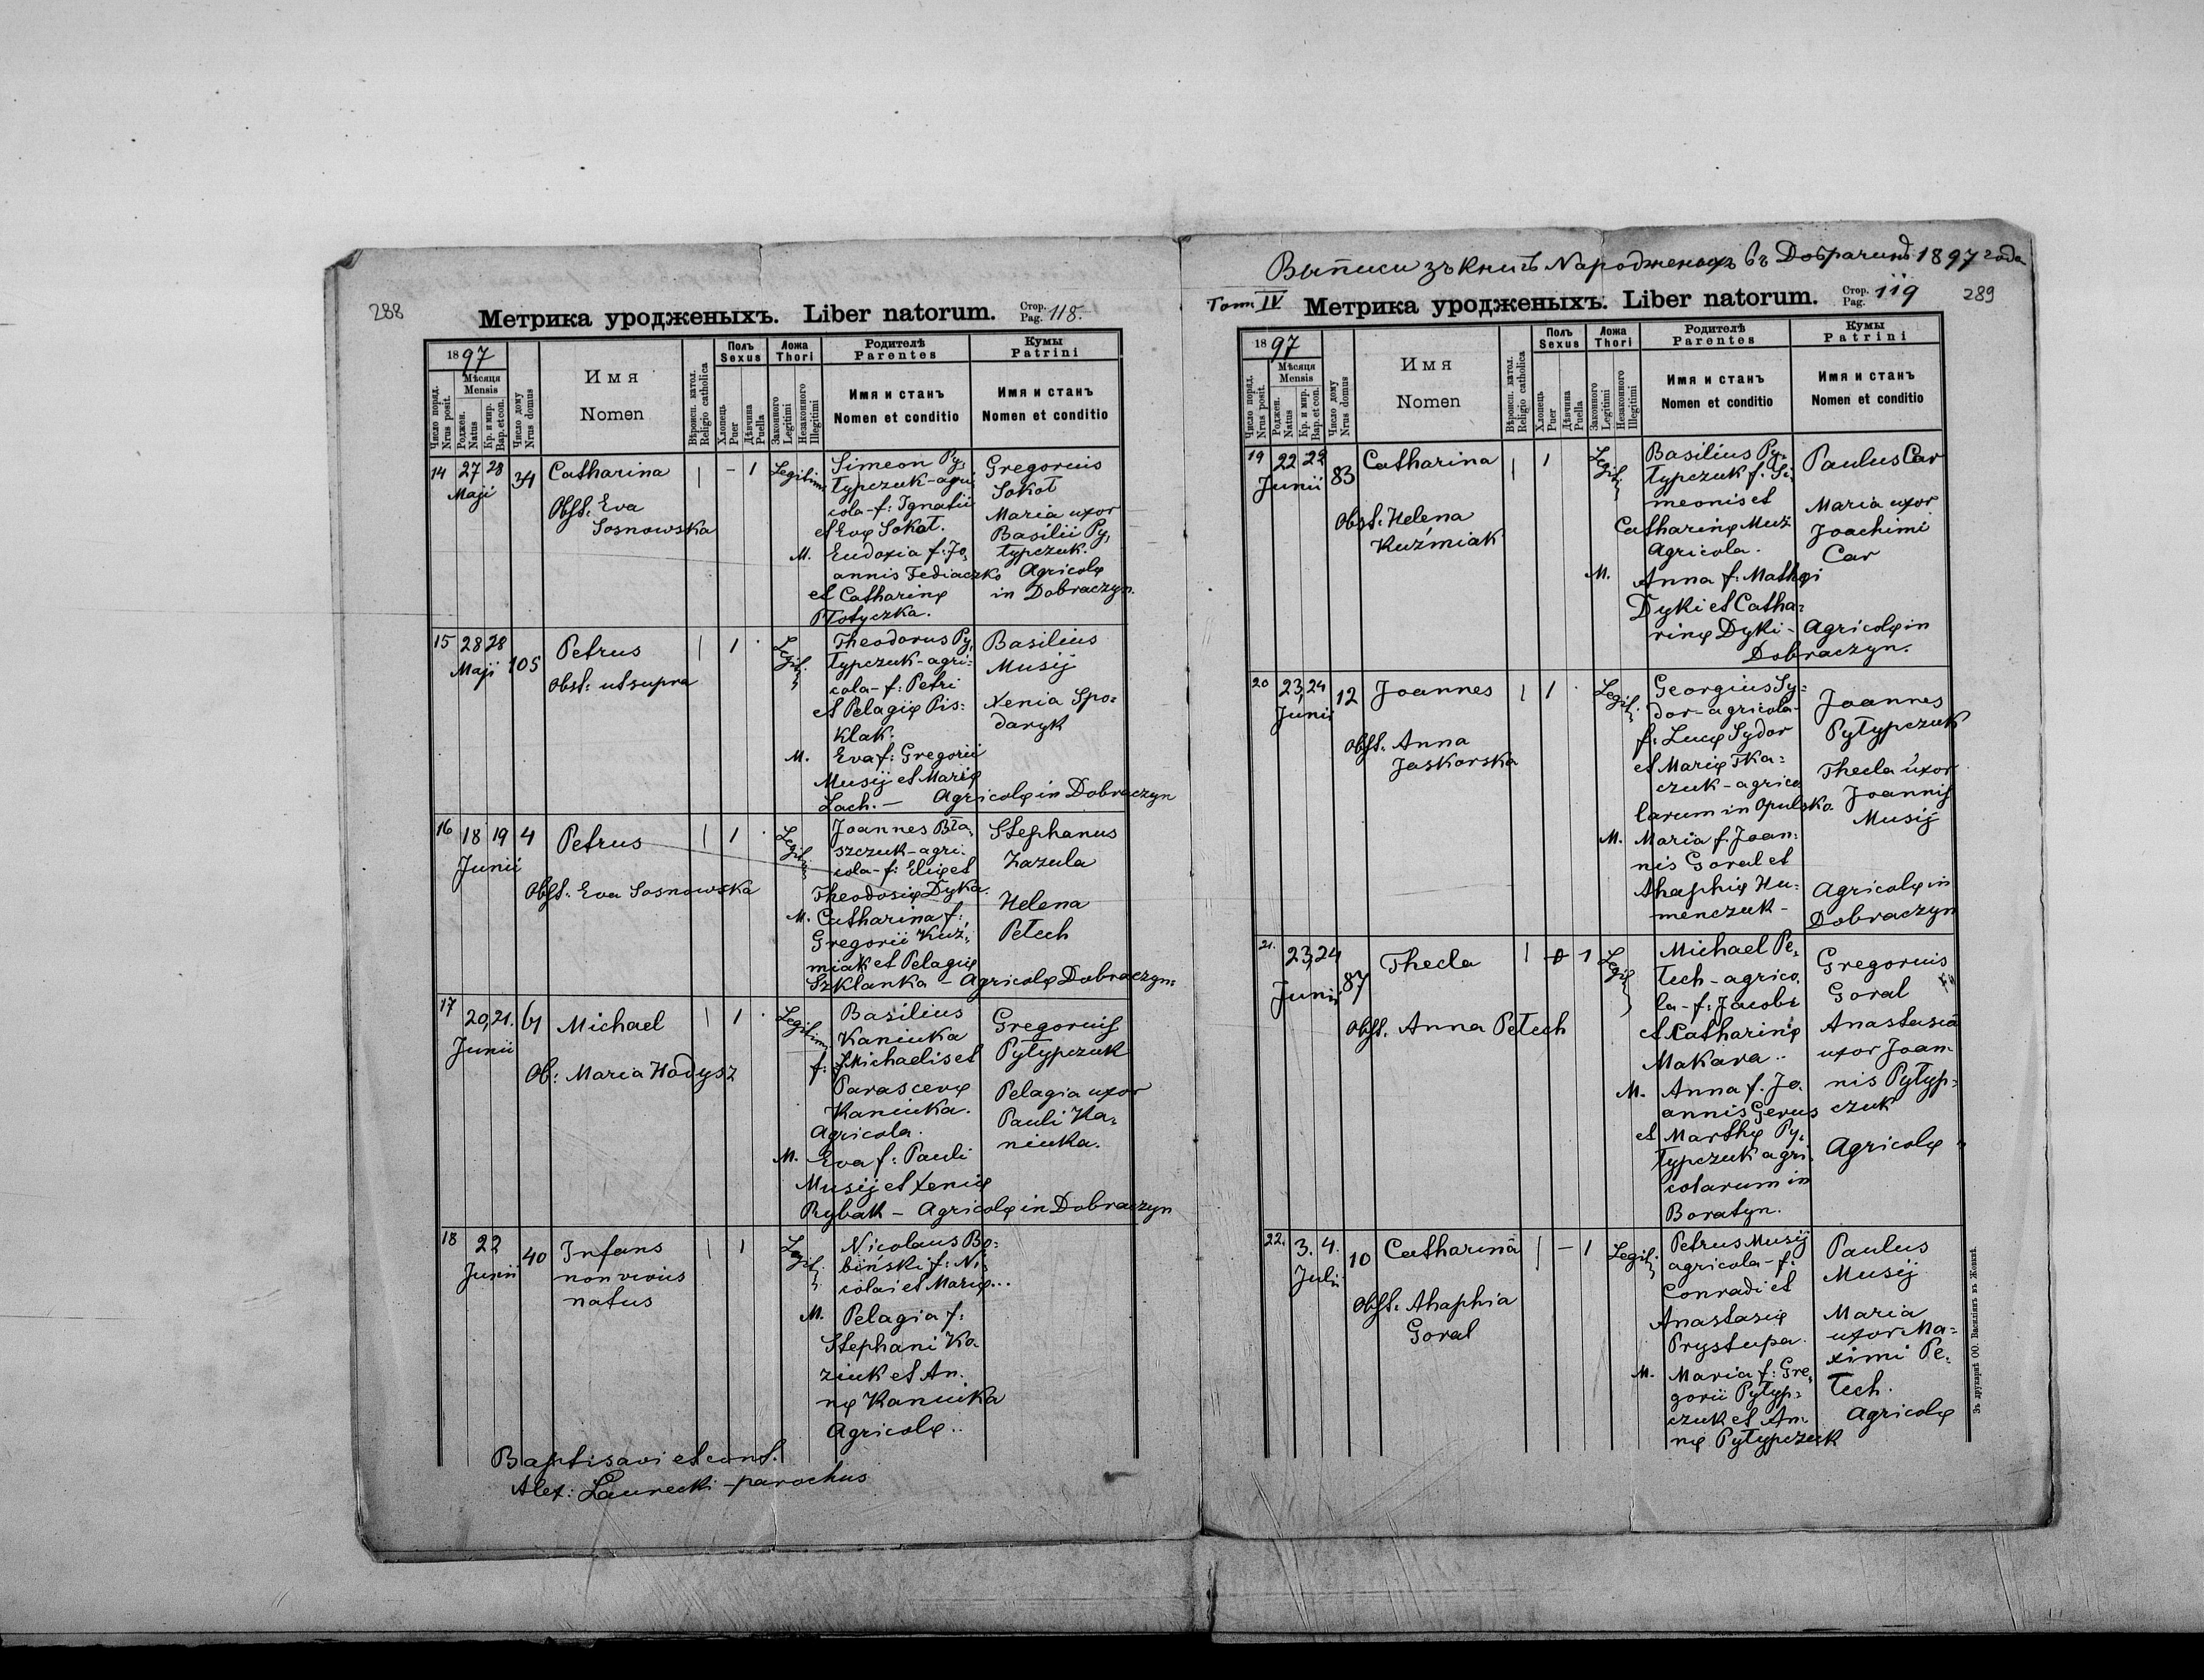 288
Метрика уродженыхъ. Liber natorum. Стор. Pag. 118.
1897
Число поряд. Nrus posit.
Мѣсяця Mensis
Роджен. Natus
Кр. и мир. Bap. et con.
Число дому Nrus domus
Имя
Nomen
Вѣроисп. катол. Religio catholica
Полъ Sexus
Хлопець Puer
Дѣвчина Puella
Ложа Thori
Законного Legitimi
Незаконного Illegitimi
Родителѣ Parentes
Имя и станъ
Nomen et conditio
Кумы Patrini
Имя и станъ
Nomen et conditio
14 27 28 Maji 34
Catharina
Obst: Eva
Sosnowska
| - 1 Legitimi
Simeon Py,
łypczuk-agri,
cola-f: Ignatii
et Evę Sokoł.
M. Eudoxia f: Jo,
annis Fediaczko
et Catharinę
Płotyczka.
Gregorius
Sokoł
Maria uxor
Basilii Py,
łypczuk.
Agricolę
in Dobraczyn.
15 28 28 Maji 105
Petrus
Obst: ut supra
| 1 Legit.
Theodorus Py,
łypczuk-agri=
cola-f: Petri
et Pelagię Pis=
klak.
M. Eva f: Gregorii
Musij et Marię
Lach. — Agricolę in Dobraczyn
Basilius
Musij
Xenia Spo=
daryk
16 18 19 Junii 4
Petrus
Obst: Eva Sosnowska
| 1 Legitimi
Joannes Bła,
szczuk-agri,
cola-f: Elię et
Theodosię Dyka.
M. Catharina f:
Gregorii Kuź,
miak et Pelagię
Szklanka - Agricolę Dobraczyn.
Stephanus
Zazula
Helena
Petech
17 20, 21. Junii 61
Michael
Ob: Maria Hodysz
| 1 Legitimi
Basilius
Kaniuka
f: Michaelis et
Parascevę
Kaniuka.
Agricola.
M. Eva f: Pauli
Musij et Xenię
Rybak - Agricolę in Dobraczyn
Gregorius
Pyłypczuk
Pelagia uxor
Pauli Ka,
niuka.
18 22 Junii 40
Infans
non vivus
natus
| 1 Legit.
Nicolaus Bo=
biński f: Ni,
colai et Marię...
M. Pelagia f:
Stephani Ko,
ziuk et An,
nę Kaniuka
Agricolę..
Baptisavi et conf.
Alex: Laurecki - parochus
Выписи зъ Книгъ Народженыхъ въ Добрачинѣ 1897 года
Tom IV Метрика уродженыхъ. Liber natorum. Стор. Pag. 119 289
1897
Число поряд. Nrus posit.
Мѣсяця Mensis
Роджен. Natus
Кр. и мир. Bap. et con.
Число дому Nrus domus
Имя
Nomen
Вѣроисп. катол. Religio catholica
Полъ Sexus
Хлопець Puer
Дѣвчина Puella
Ложа Thori
Законного Legitimi
Незаконного Illegitimi
Родителѣ Parentes
Имя и станъ
Nomen et conditio
Кумы Patrini
Имя и станъ
Nomen et conditio
19 22 22 Junii 83
Catharina
Obst: Helena
Kuźmiak
| 1 Legit.
Basilius Py=
łypczuk f. Si,
meonis et
Catharinę Muz
Agricola.
M. Anna f: Mathęi
Dyki et Catha=
rinę Dyki - Agricolę in
Dobraczyn.
Paulus Car
Maria uxor
Joachimi
Car
20 23, 24 Junii 12
Joannes
Obst. Anna
Jaskorska
| 1 Legit.
Georgius Sy=
dor-agricola-
f: Lucę Sydor
et Marię Tka=
czuk-agrico
larum in Opulsko.
M. Maria f. Joan=
nis Goral et
Ahaphię Hu=
menczuk -
Joannes
Pyłypczuk
Thecla uxor
Joannis
Musij
Agricolę in
Dobraczyn
21. 23, 24 Junii 87
Thecla
Obst. Anna Petech
| 1 Legit
Michael Pe,
tech-agrico,
la-f: Jacobi
et Catharinę
Makara..
M. Anna f. Jo.
annis Gerus
et Marthę Py,
łypczuk agri,
colarum in
Boratyn.
Gregorius
Goral
Anastasia
uxor Joan=
nis Pyłyp=
czuk
Agricolę
22. 3. 4. Julii 10
Catharina
Obst: Ahaphia
Goral
| - 1 Legit.
Petrus Musij
agricola-f:
Conradi et
Anastasię
Prystupa.
M. Maria f: Gre,
gorii Pyłyp=
czuk et An=
nę Pyłypczuk
Paulus
Musij
Maria
uxor Ma=
ximi Pe,
tech.
Agricolę
Зъ друкарнѣ ОО. Василіянъ въ Жовквѣ.